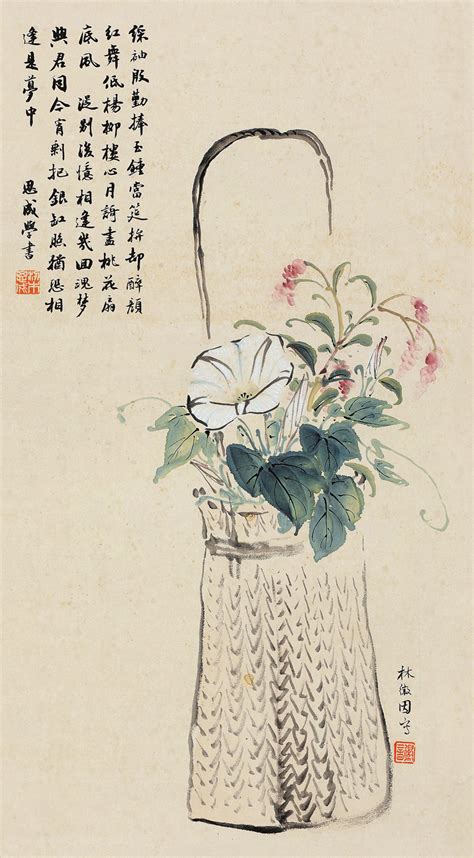 綵袖殷勤捧玉鍾當筵拚却醉顏
紅舞低楊柳樓心月謌盡桃花扇
底風 從別後憶相逢幾回魂梦
與君同今宵剩把銀缸照猶恐相
逢是夢中
思成學書
林徽因寫